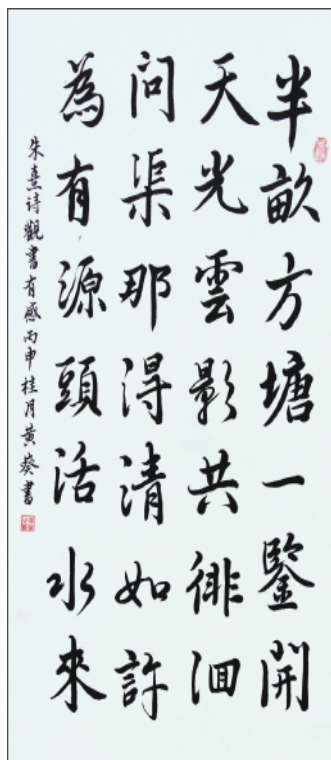 半畝方塘一鑒開
天光雲影共徘徊
問渠那得清如許
為有源頭活水來
朱熹诗觀書有感丙申桂月黄葵書